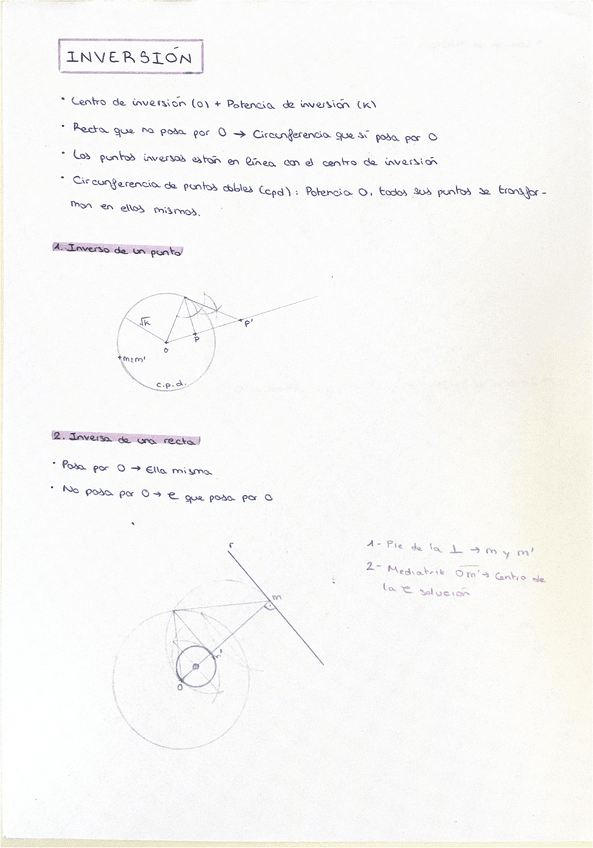 INVERSIÓN
· Centro de inversión (O) + Potencia de inversión (K)
· Recta que no pasa por O → Circunferencia que sí pasa por O
· Los puntos inversos están en línea con el centro de inversión
· Circunferencia de puntos dobles (cpd): Potencia O, todos sus puntos se transfor-
man en ellos mismos.
1. Inverso de un punto
√K
P'
P
O
m≡m'
c.p.d.
2. Inversa de una recta
· Pasa por O → Ella misma
· No pasa por O → C que pasa por O
r
1- Pie de la ⊥ → m y m'
2- Mediatriz Om' → Centro de
la C solución
m
m'
O